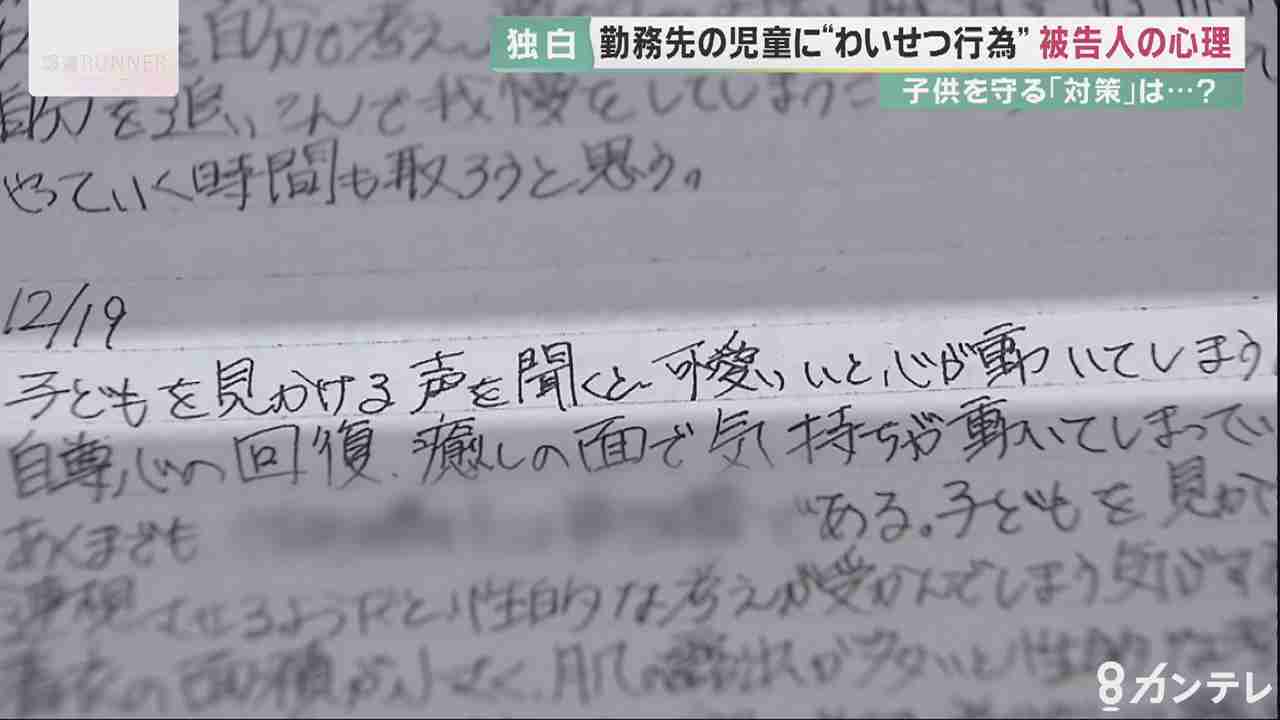 報道RUNNER
独白 勤務先の児童に“わいせつ行為” 被告人の心理
子供を守る「対策」は…?
を自分で考え
自分を追いこんで我慢をしてしまうこ
やっていく時間も取ろうと思う。
12/19
子どもを見かける声を聞くと可愛いいと心が動いてしまう
自尊心の回復、癒しの面で気持ちが動いてしまってい
あくまでも
ある。子どもを見かけ
させるようだと性的な考えが浮かんでしまう気がす
の面積が小さく肌の露出が多いと性的な
8カンテレ